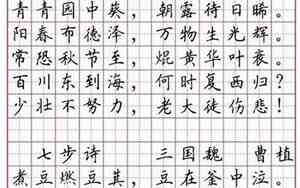 青青园中葵，朝露待日晞。
阳春布德泽，万物生光辉。
常恐秋节至，焜黄华叶衰。
百川东到海，何时复西归？
少壮不努力，老大徒伤悲！
七步诗 三国魏 曹植
煮豆燃豆萁，豆在釜中泣。